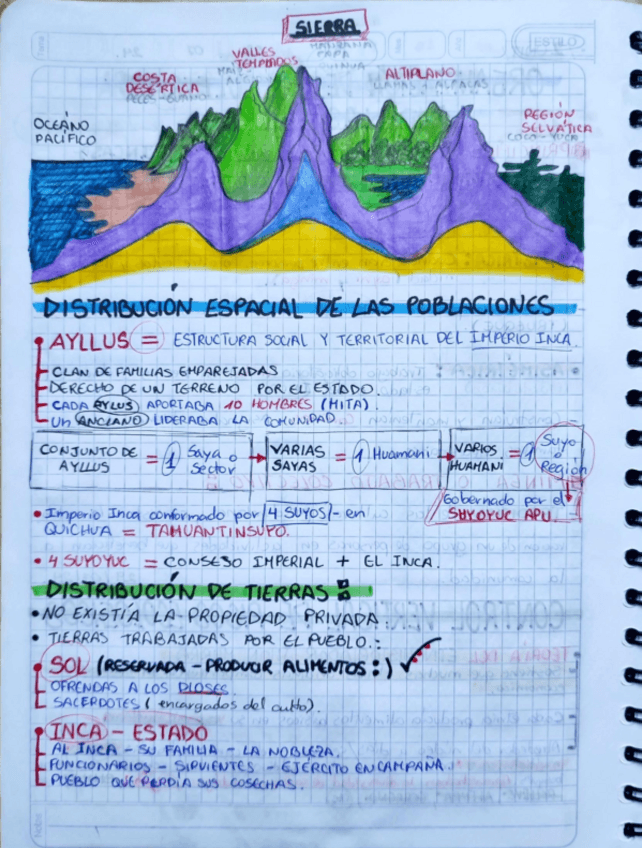 SIERRA
VALLES
TEMPLADOS
COSTA
DESÉRTICA
PECES - GUANO
PAPA
QUINUA
ALTIPLANO
LLAMAS Y ALPACAS
OCEÁNO
PACÍFICO
REGIÓN
SELVÁTICA
COCO - YUCA
DISTRIBUCIÓN ESPACIAL DE LAS POBLACIONES
• AYLLUS = ESTRUCTURA SOCIAL Y TERRITORIAL DEL IMPERIO INCA.
CLAN DE FAMILIAS EMPAREJADAS
DERECHO DE UN TERRENO POR EL ESTADO.
CADA AYLUS APORTABA 10 HOMBRES (MITA).
UN ANCIANO LIDERABA LA COMUNIDAD.
CONJUNTO DE AYLLUS = 1 Saya o Sector
VARIAS SAYAS = 1 Huamani
VARIOS HUAMANI = 1 Suyo o Región
Gobernado por el
SUYOYUC APU.
• Imperio Inca conformado por 4 SUYOS - en
QUICHUA = TAHUANTINSUYO.
• 4 SUYOYUC = CONSEJO IMPERIAL + EL INCA.
DISTRIBUCIÓN DE TIERRAS:
• NO EXISTÍA LA PROPIEDAD PRIVADA.
• TIERRAS TRABAJADAS POR EL PUEBLO.:
• SOL (RESERVADA - PRODUCIR ALIMENTOS :) ✓
OFRENDAS A LOS DIOSES.
SACERDOTES (encargados del culto).
• INCA - ESTADO
AL INCA - SU FAMILIA - LA NOBLEZA.
FUNCIONARIOS - SIRVIENTES - EJÉRCITO EN CAMPAÑA.
PUEBLO QUE PERDÍA SUS COSECHAS.